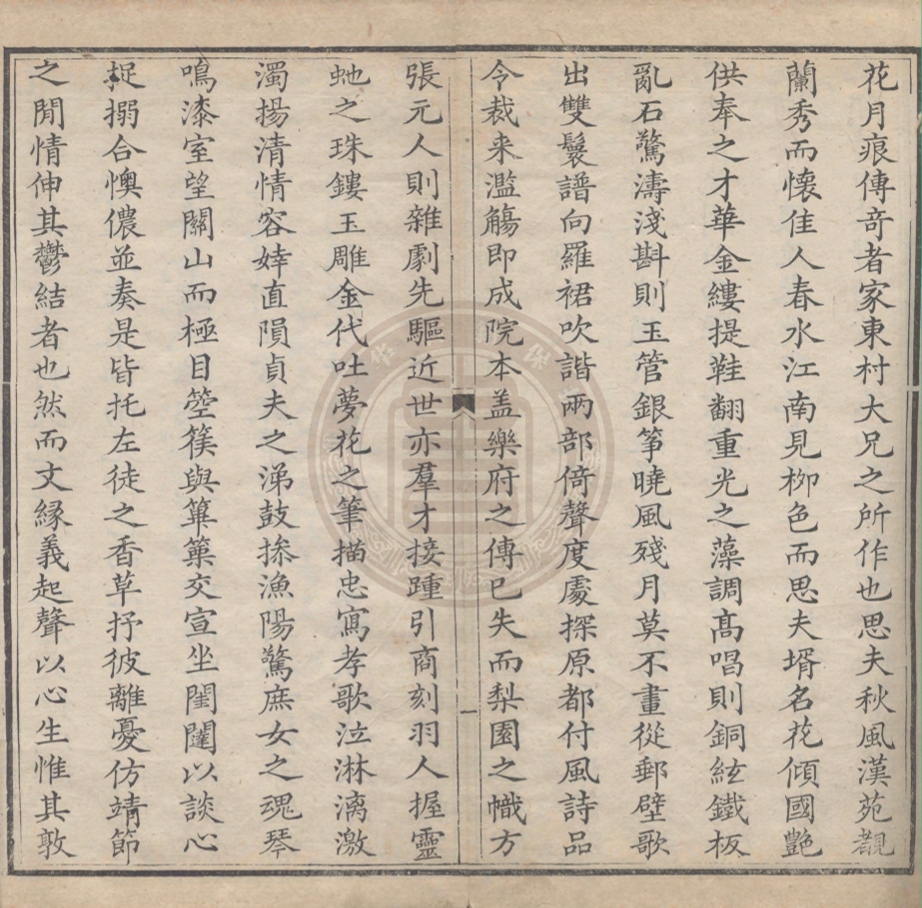 花月痕傳奇者家東村大兄之所作也思夫秋風漢苑覩
蘭秀而懷佳人春水江南見栁色而思夫壻名花傾國艷
供奉之才華金縷提鞋翻重光之藻調髙唱則銅絃鐵板
亂石驚濤淺斟則玉管銀筝曉風殘月莫不畫從郵壁歌
出雙鬟譜向羅裙吹諧兩部倚聲度處探原都付風詩品
令裁来濫觴即成院本盖樂府之傳已失而梨園之幟方
張元人則雜劇先驅近世亦羣才接踵引商刻羽人握靈
虵之珠鏤玉雕金代吐夢花之筆描忠寫孝歌泣淋漓激
濁揚清情容婞直隕貞夫之涕鼓摻漁陽驚庶女之魂琴
鳴漆室望關山而極目箜篌與篳篥交宣坐閨闥以談心
捉搦合懊儂並奏是皆托左徒之香草抒彼離憂仿靖節
之閒情伸其鬱結者也然而文緣義起聲以心生惟其敦
一